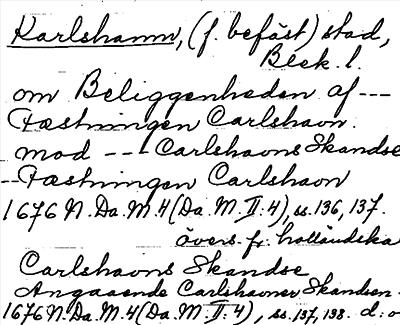 Karlshamn, (f. befäst) stad,
Blek. l.
om Beliggenheden af ---
Fæstningen Carlshavn.
mod --- Carlshavns Skandse
-- Fæstningen Carlshavn
1676 N. Da. M. 4 (Da. M. II. 4), ss. 136, 137.
övers. fr. holländska
Carlshavns Skandse
Angaaende Carlshavner Skandsen
1676 N. Da. M. 4 (Da. M. II. 4), ss. 137, 138. d:o